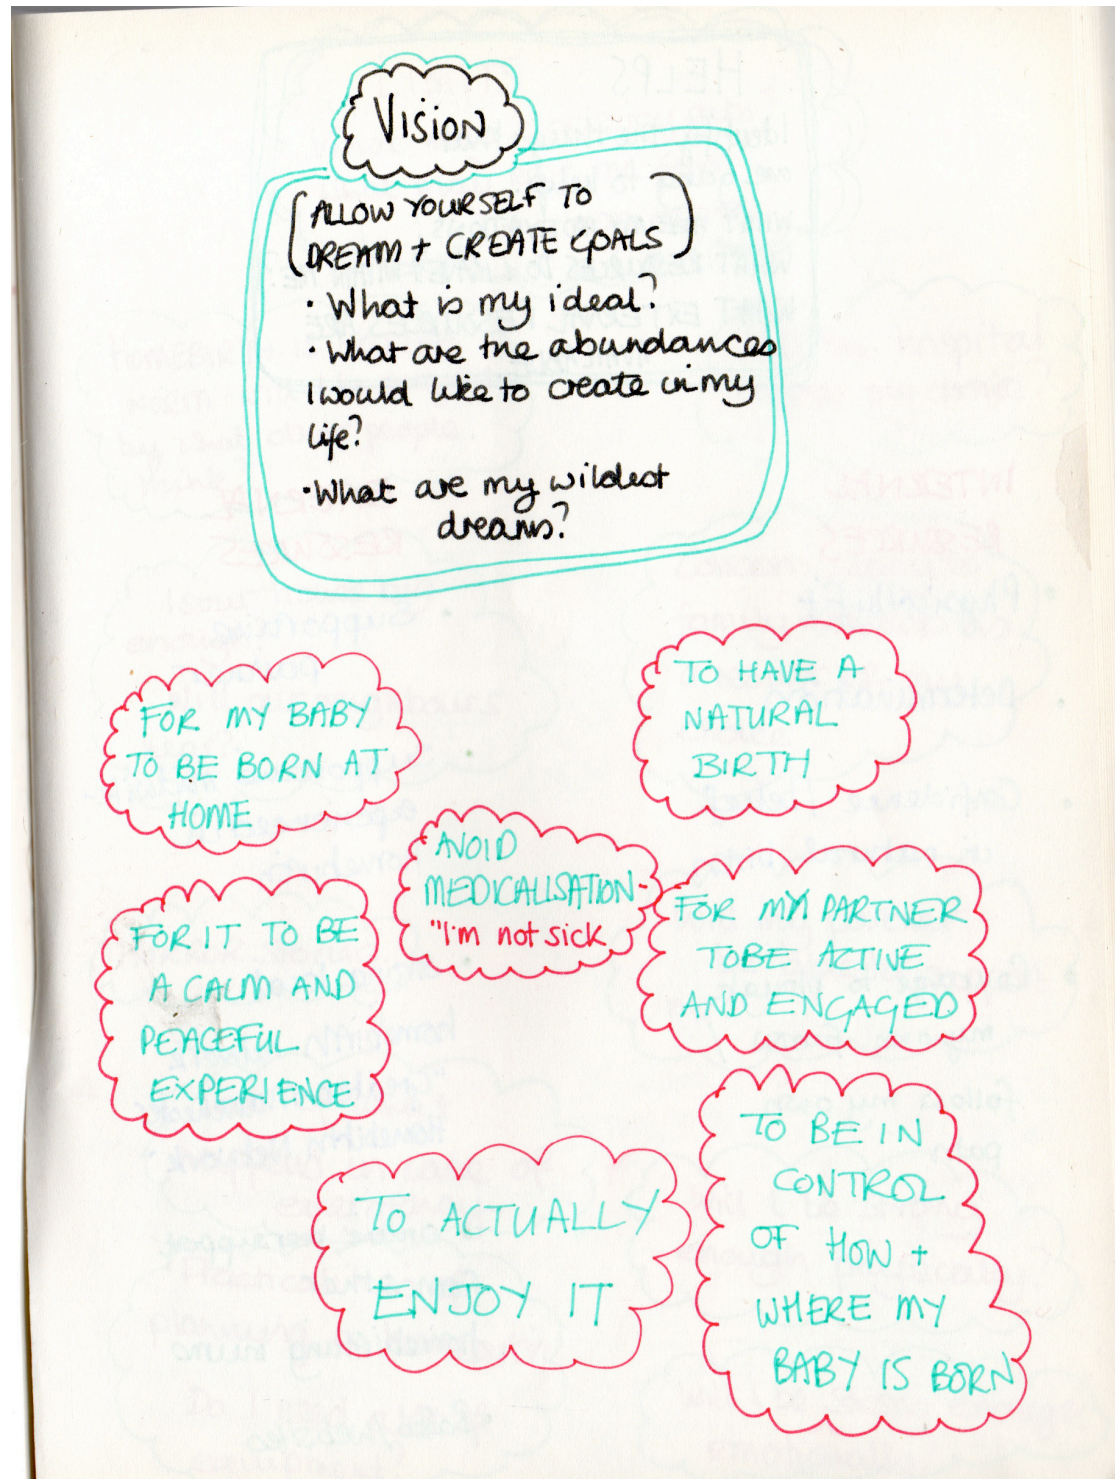 Vision
(ALLOW YOURSELF TO
DREAM + CREATE GOALS)
· What is my ideal?
· What are the abundances
I would like to create in my
life?
· What are my wildest
dreams?
FOR MY BABY
TO BE BORN AT
HOME
TO HAVE A
NATURAL
BIRTH
AVOID
MEDICALISATION-
"I'm not sick
FOR IT TO BE
A CALM AND
PEACEFUL
EXPERIENCE
FOR MY PARTNER
TO BE ACTIVE
AND ENGAGED
TO ACTUALLY
ENJOY IT
TO BE IN
CONTROL
OF HOW +
WHERE MY
BABY IS BORN